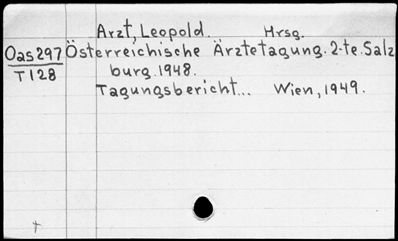 Arzt, Leopold. Hrsg.
Oas297 Österreichische Ärztetagung. 2-te. Salz
T128 burg. 1948.
Tagungsbericht... Wien, 1949.